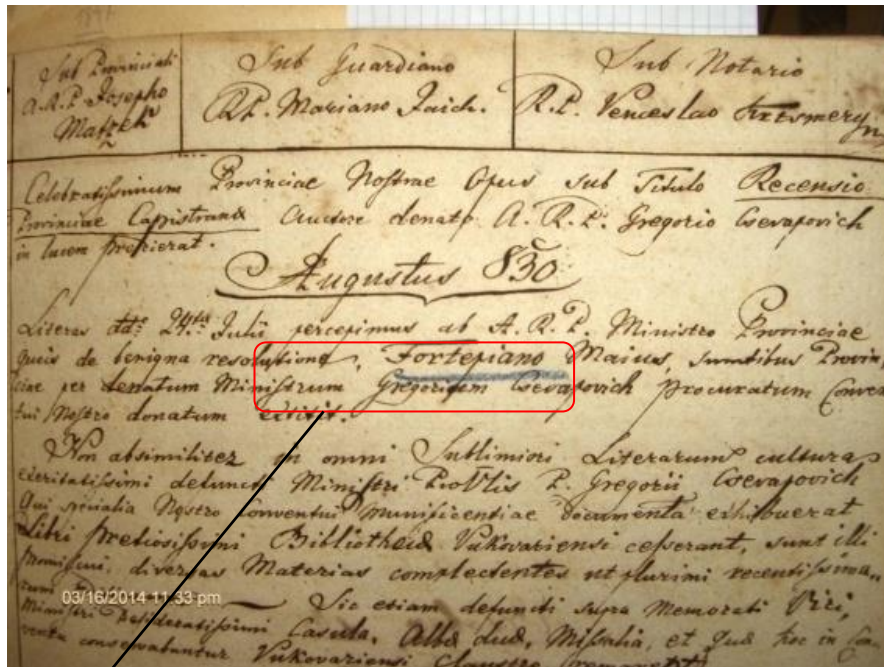 Sub Provinciali
A.R.P. Josepho
Matzek
Sub Guardiano
R.P. Mariano Jaich.
Sub Notario
R.P. Venceslao
Celebratissimum Provinciae Nostrae Opus sub Titulo Recensio
Provinciae Capistranae Auctore denato A.R.P. Gregorio Csevapovich
in lucem prodierat.
Augustus 830
Literas dd° 24ta Julii percepimus ab A.R.P. Ministro Provinciae
queis de benigna resolutione, Fortepiano Maius, sumtibus Provin,
ciae per denatum Ministrum Gregorium Csevapovich procuratum Conven
tui Nostro donatum extitit.
Non absimiliter in omni Sublimiori Literarum cultura
exercitatissimi defuncti Ministri P. Gregorii Csevapovich
Qui specialia Nostro Conventui munificentiae documenta exhibuerat
Libri pretiosissimi Bibliothecae Vukovariensi cesserant, sunt illi
promiscui, diversas Materias complectentes ut plurimi recentissima,,
03/16/2014 11:33 pm
Sic etiam defuncti supra Memorati Viri,
desideratissimi Casula, Albae duae, Missalia, et quae hoc in Con
conservabantur Vukovariensi Claustro